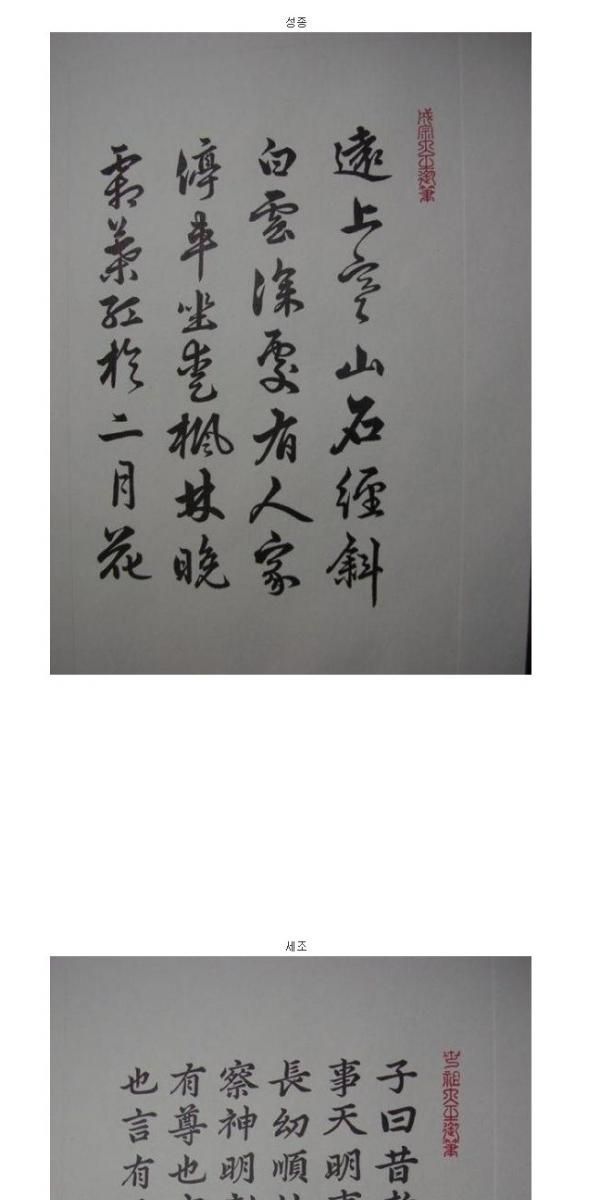 성종
成宗大王御筆
遠上寒山石經斜
白雲深處有人家
停車坐愛楓林晚
霜葉紅於二月花
세조
世祖大王御筆
子曰昔
事天明事
長幼順
察神明
有尊也
也言有